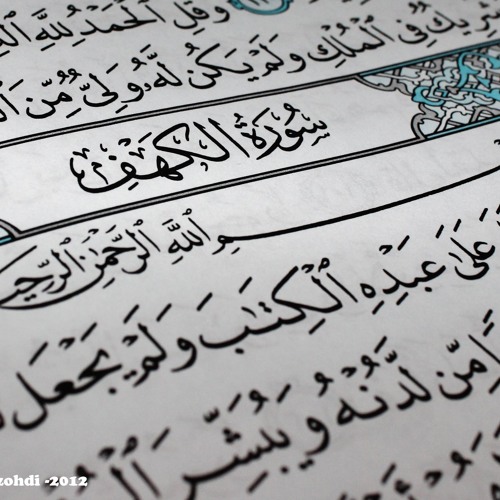 وَقُلِ ٱلْحَمْدُ لِلَّهِ
شَرِيكٌ فِى ٱلْمُلْكِ وَلَمْ يَكُن لَّهُۥ وَلِىٌّ مِّنَ
سُورَةُ الكَهْفِ
بِسْمِ ٱللَّهِ ٱلرَّحْمَٰنِ ٱلرَّحِيمِ
عَلَىٰ عَبْدِهِ ٱلْكِتَٰبَ وَلَمْ يَجْعَل
مِّن لَّدُنْهُ وَيُبَشِّرَ
zohdi -2012